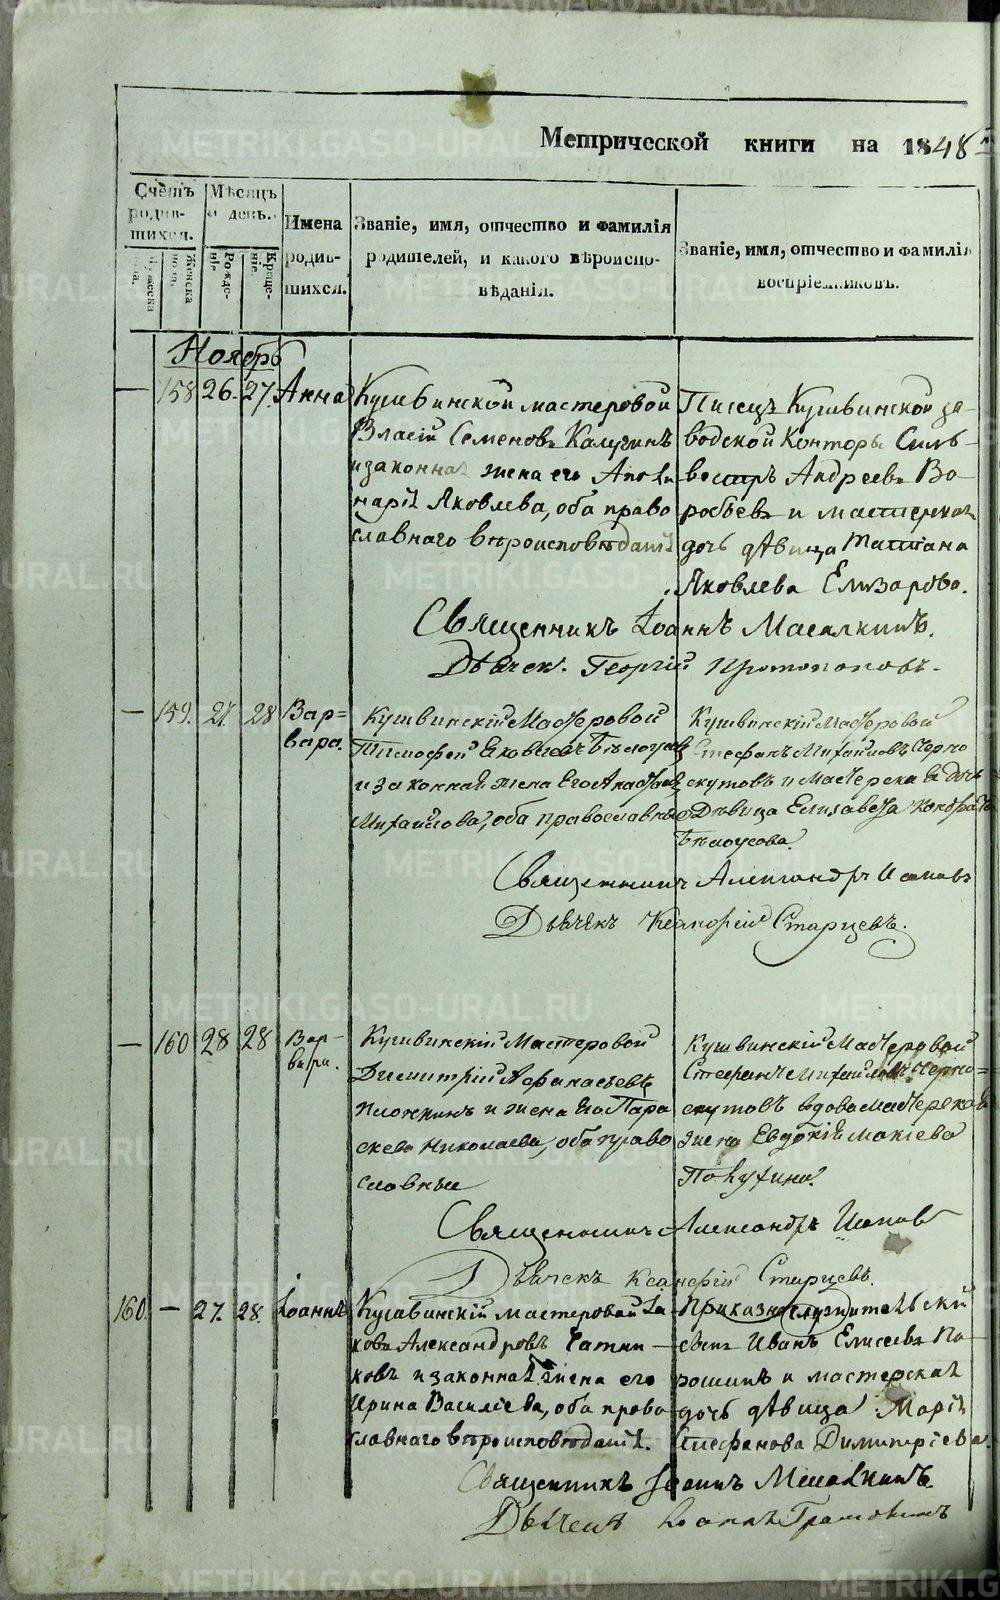 Метрической книги на 1848
Счетъ родив-шихся.
Мѣсяцъ и день.
Имена родив-шихся.
Званіе, имя, отчество и фамилія родителей, и какого вѣроиспо-вѣданія.
Званіе, имя, отчество и фамилія воспріемниковъ.
Мужеска пола.
Женска пола.
Рожде-нія.
Креще-нія.
Ноябрь
— 158 26. 27. Анна
Кушвинской мастеровой
Власій Семеновъ Калугинъ
и законная жена его Апол
нарія Яковлева, оба право
славнаго вѣроисповѣданія
Писецъ Кушвинской за-
водской Конторы Силь-
вестръ Андреевъ Во-
робьевъ и мастерская
дочь дѣвица Татіана
Яковлева Елизарова.
Священникъ Іоаннъ
Дьячек. Георгій Протопоповъ.
— 159. 27 28 Вар=
вара.
Кушвинскій Мастеровой
Тимофей Яковлевъ Бѣлоусовъ
и законная жена Его Анастасія
Михайлова, оба православные
Кушвинскій Мастеровой
Стефанъ Михайловъ Черно
скутовъ и Мастерская дочь
Дѣвица Елизавета Кондратьева
Бѣлоусова.
Священникъ Александръ Поповъ
Дьячекъ Ксенофонтій Старцевъ.
— 160 28 28 Вар-
вара.
Кушвинскій Мастеровой
Димитрій Афанасьевъ
и жена Его Пара
скева Николаева, оба право
славные
Кушвинскій Мастеровой
Стефанъ Михайловъ Черно=
скутовъ вдова Мастерская
жена Евдокія
Священникъ Александръ Поповъ
Дьячекъ Ксенофонтій Старцевъ.
160. — 27. 28. Іоаннъ
Кушвинскій мастеровой Іа
ковъ Александровъ
ковъ и законная жена его
Ирина Васильева, оба право
славнаго вѣроисповѣданія.
Приказнослужительскій
сынъ Иванъ Елисеевъ Па-
рошинъ и мастерская
дочь дѣвица Марія
Стефанова Димитріева.
Священникъ Іоаннъ
Дьячекъ Іоаннъ
METRIKI.GASO-URAL.RU